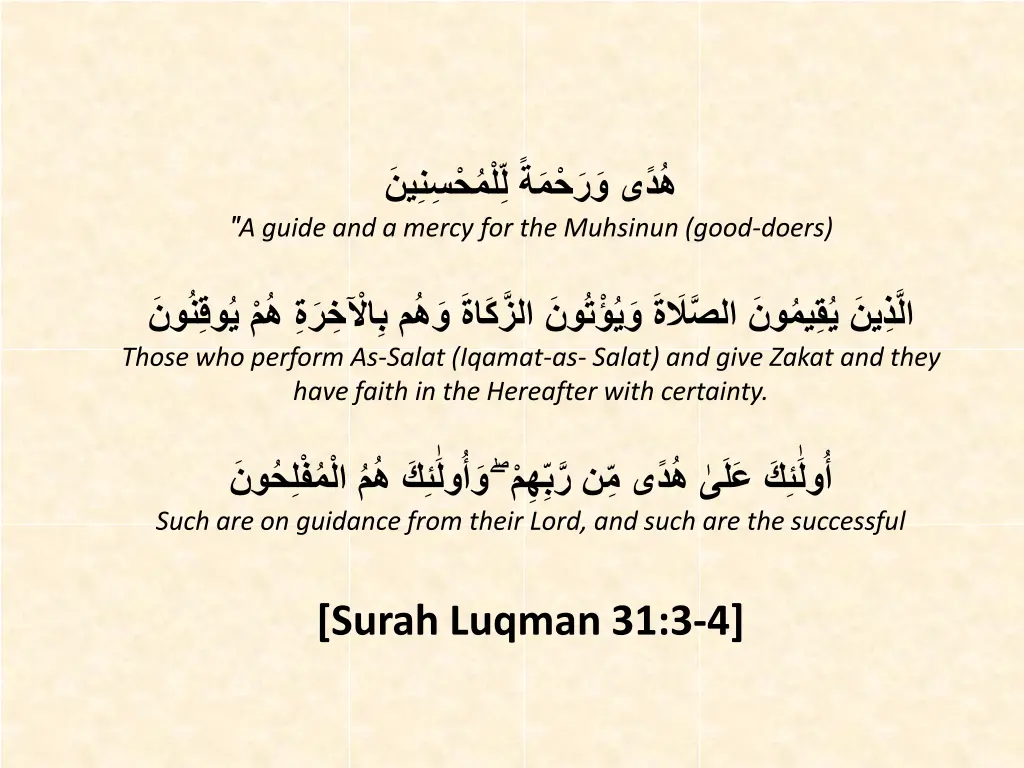 هُدًى وَرَحْمَةً لِّلْمُحْسِنِينَ
"A guide and a mercy for the Muhsinun (good-doers)
الَّذِينَ يُقِيمُونَ الصَّلَاةَ وَيُؤْتُونَ الزَّكَاةَ وَهُم بِالْآخِرَةِ هُمْ يُوقِنُونَ
Those who perform As-Salat (Iqamat-as- Salat) and give Zakat and they
have faith in the Hereafter with certainty.
أُولَٰئِكَ عَلَىٰ هُدًى مِّن رَّبِّهِمْ ۖ وَأُولَٰئِكَ هُمُ الْمُفْلِحُونَ
Such are on guidance from their Lord, and such are the successful
[Surah Luqman 31:3-4]